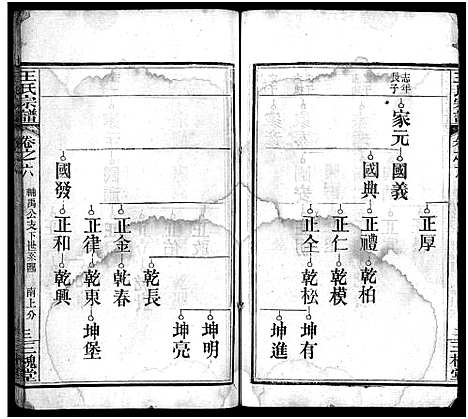 志年
長子
家元
國義
國典
國發
正厚
正禮
正仁
正全
正金
正律
正和
乾柏
乾模
乾松
乾長
乾春
乾東
乾興
坤有
坤進
坤明
坤亮
坤堡
王氏宗譜
卷之六
公支下世系圖
南上分
三槐堂